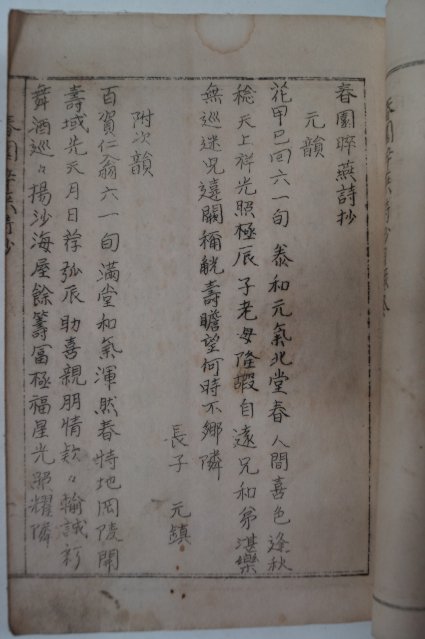 春園晬燕詩抄
元韻
花甲已回六一旬 泰和元氣北堂春 人間喜色逢秋
稔 天上祥光照極辰 子老母隆嘏自遠 兄和弟湛樂
無巡 迷兄遠關稱觥壽 瞻望何時不鄉隣
長子 元鎮
附次韻
百賀仁翁六一旬 滿堂和氣渾然春 特地岡陵開
壽域 先天月日荐弧辰 助喜親朋情欵々 輸誠彩
舞酒巡々 揚沙海屋餘籌富 極福星光照耀隣